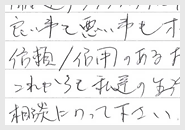 良い事も悪い事もオ
信頼/信用のあるオ
これからも私達の生
相談にのって下さい